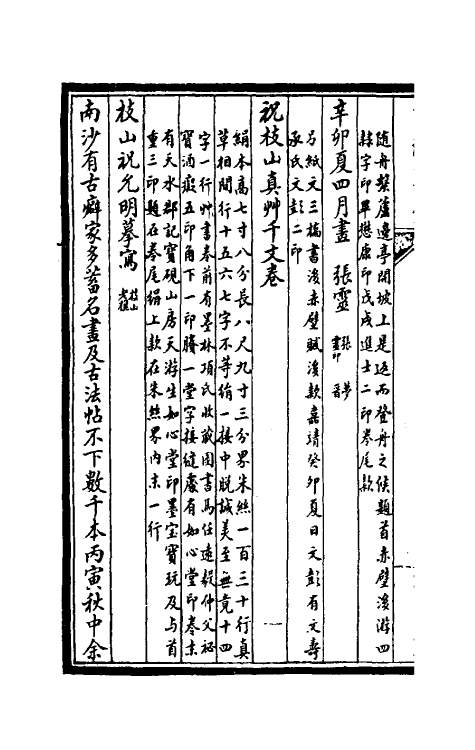 隨舟繫蘆邊亭閣坡上是返而登舟之候題首赤壁後游四
隸字印畢懋康印戊戌進士二印卷尾款
辛卯夏四月畫 張靈 張靈 夢晋
弓紙文三橋書後赤壁賦後款嘉靖癸卯夏日文彭有文壽
承氏文彭二印
祝枝山真艸千文卷
絹本高七寸八分長八尺九寸三分界朱絲一百三十行真
草相間行十五六七字不等絹一接中脱誠美至無竟十四
字一行艸書卷前有墨林項氏收藏圖書馬任遠毅仲父祕
寶酒癡五印角下一印勝一堂字接縫處有如心堂印卷末
有天水郡記寶硯山房天游生如心堂印墨宝寶玩及与首
重三印題在卷尾絹上款在朱絲界內末一行
枝山祝允明摹寫 枝山 老樵
南沙有古癖家多蓄名畫及古法帖不下數千本丙寅秋中余